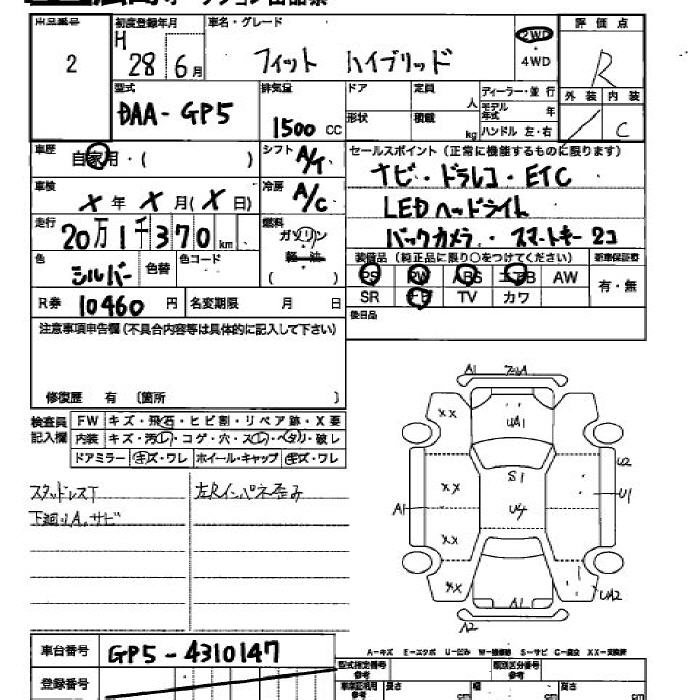 出品番号 初度登録年月 車名・グレード 評価点
2 H 28年 6月 フィット ハイブリッド 2WD・4WD R
型式 排気量 ドア 定員 ディーラー・並行 外装 内装
DAA-GP5 1500 CC 人 モデル年式 年 / C
形状 積載 kg ハンドル 左・右
車歴 自家用・( ) シフト A/T セールスポイント(正常に機能するものに限ります)
車検 X 年 X 月(X 日) 冷房 A/C ナビ・ドラレコ・ETC
LEDヘッドライト
走行 20万1千370km 燃料 ガソリン バックカメラ・スマートキー2コ
軽・油
( )
色 シルバー 色替 色コード 装備品(純正品に限り○をつけてください) 新車保証書
PS PW ABS エアB AW 有・無
R券 10460円 名変期限 月 日 SR TV カワ
後日品
注意事項申告欄(不具合内容等は具体的に記入して下さい)
修復歴 有 〔箇所 〕
検査員記入欄 FW キズ・飛石・ヒビ割・リペア跡・X要
内装 キズ・汚レ・コゲ・穴・スレ・ヘタリ・破レ
ドアミラー キズ・ワレ ホイール・キャップ キズ・ワレ
スタッドレスT 左Rインパネ歪み
下廻りA,サビ
A1
XX UA1
S1 U2
XX A1 U4 U1
XX
XX A1 UA2
A2
A-キズ E-エクボ U-凹み W-補修跡 S-サビ C-腐食 XX-交換済
車台番号 GP5-4310147 型式指定番号 参考 類別区分番号 参考
登録番号 車庫証明用 参考 長さ cm 幅 cm 高さ cm